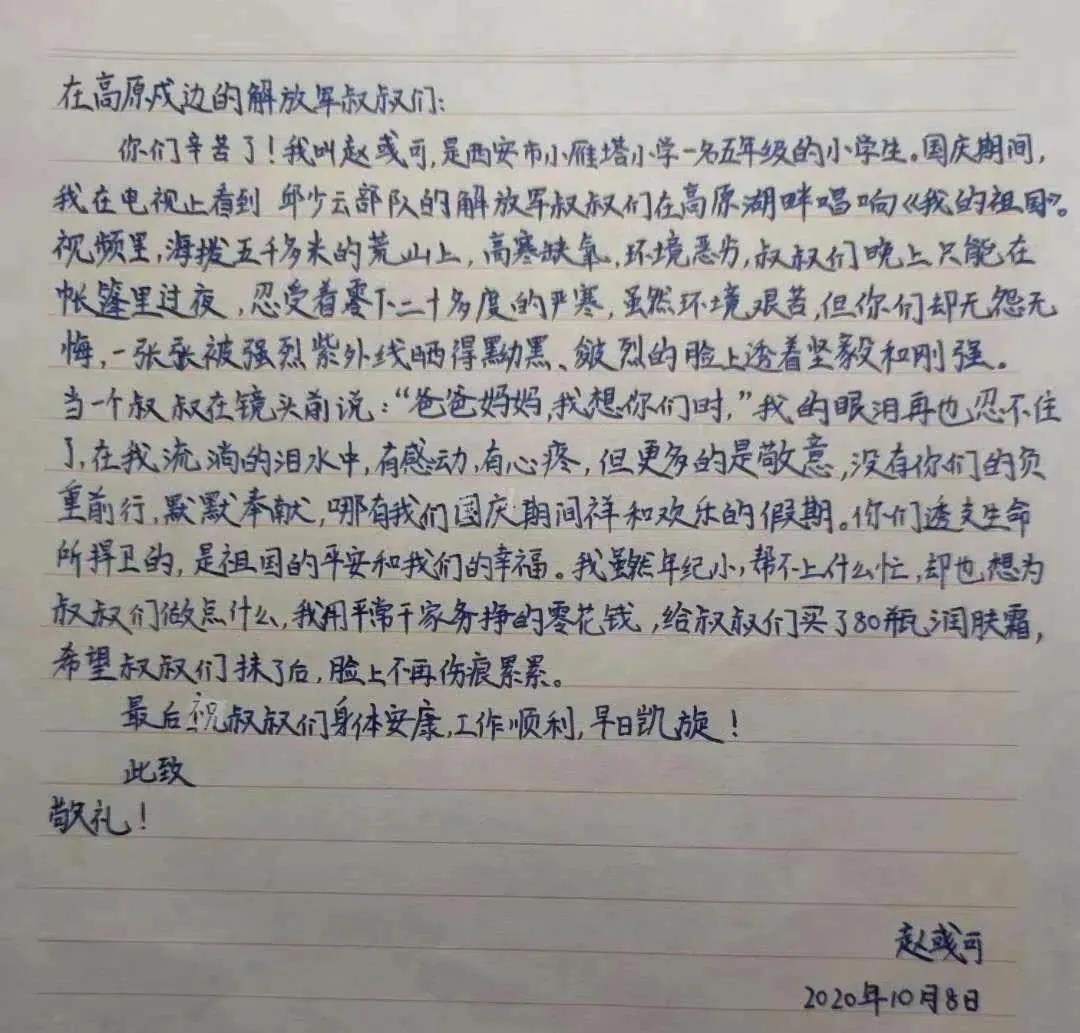 在高原戍边的解放军叔叔们:
你们辛苦了!我叫赵或可,是西安市小雁塔小学一名五年级的小学生。国庆期间,
我在电视上看到 邱少云部队的解放军叔叔们在高原湖畔唱响《我的祖国》。
视频里,海拨五千多米的荒山上,高寒缺氧,环境恶劣,叔叔们晚上只能在
帐篷里过夜,忍受着零下二十多度的严寒,虽然环境艰苦,但你们却无怨无
悔,一张张被强烈紫外线晒得黝黑、皴烈的脸上透着坚毅和刚强。
当一个叔叔在镜头前说:“爸爸妈妈,我想你们时,”我的眼泪再也忍不住
了,在我流淌的泪水中,有感动,有心疼,但更多的是敬意,没有你们的负
重前行,默默奉献,哪有我们国庆期间祥和欢乐的假期。你们透支生命
所捍卫的,是祖国的平安和我们的幸福。我虽然年纪小,帮不上什么忙,却也想为
叔叔们做点什么,我用平常干家务挣的零花钱,给叔叔们买了80瓶润肤霜,
希望叔叔们抹了后,脸上不再伤痕累累。
最后祝叔叔们身体安康,工作顺利,早日凯旋!
此致
敬礼!
赵或可
2020年10月8日